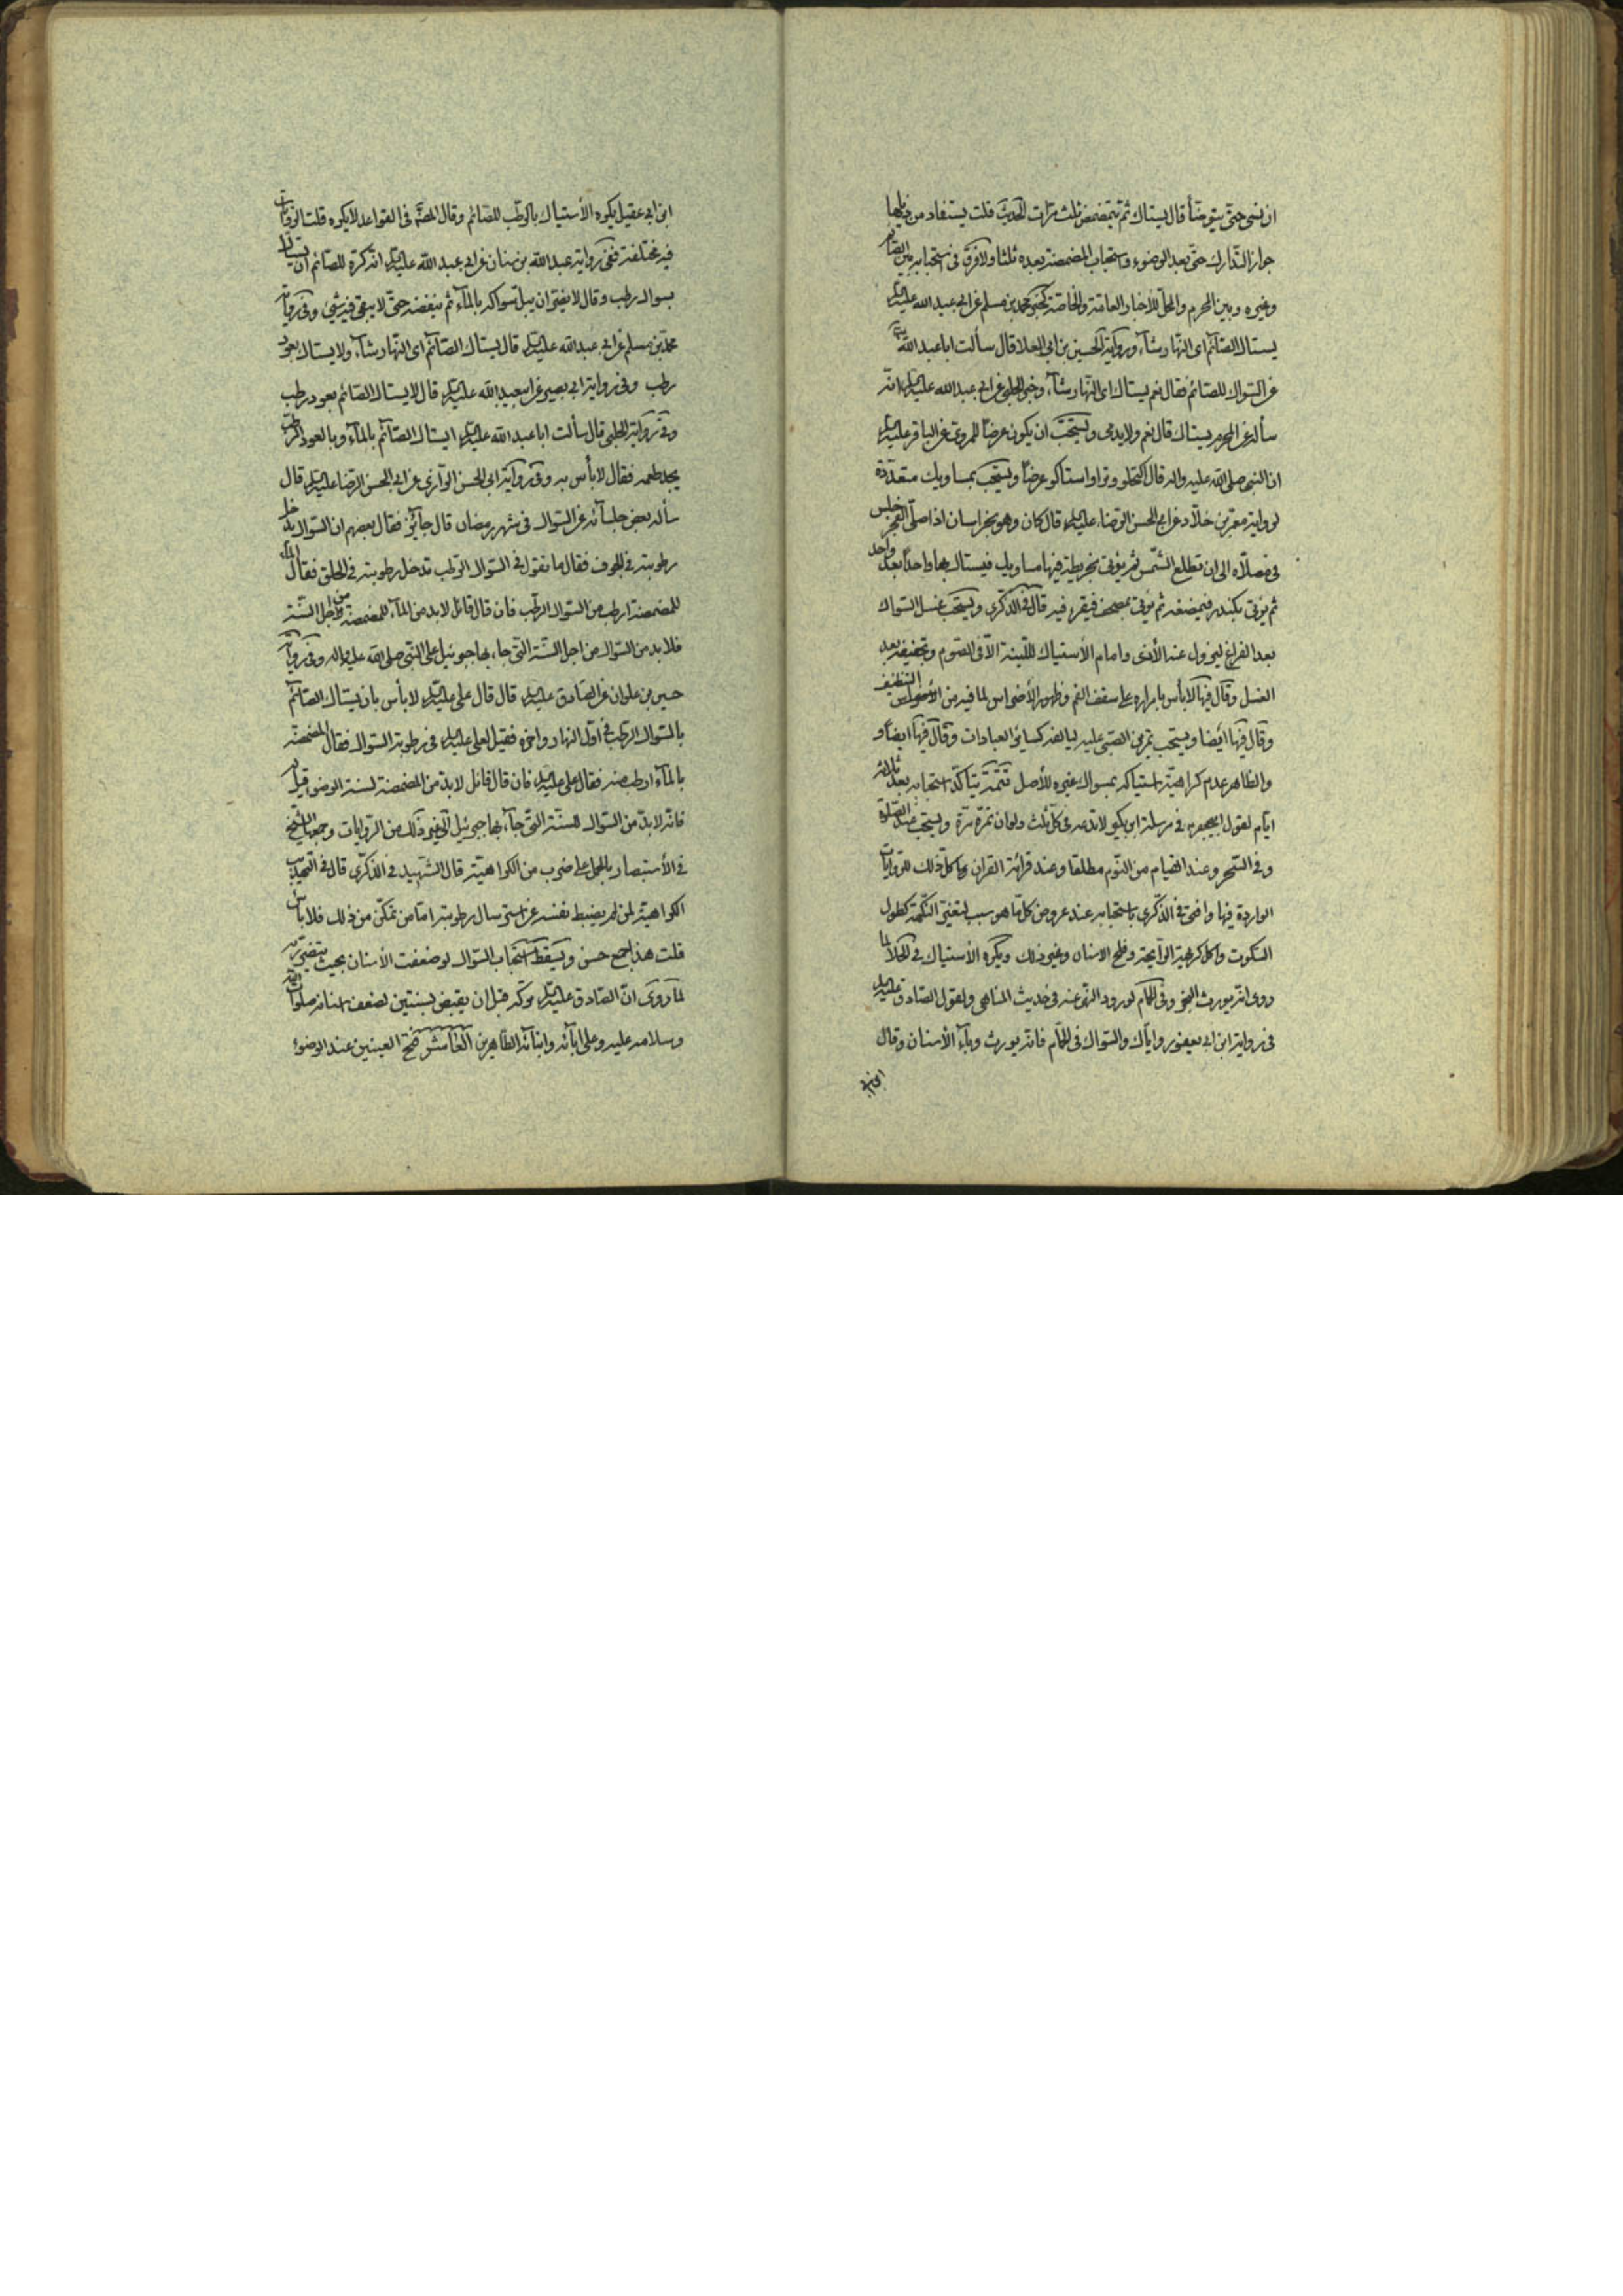 ان نسى حتى يتوضأ قال يستاك ثم يتمضمض ثلث مرات الحديث قلت يستفاد من ذيلها
جواز التدارك حتى بعد الوضوء واستحباب المضمضة بعده ثلثا ولا فرق فى استحبابه بين الصائم
وغيره وبين المحرم والمحل للأخبار العامة والخاصة كخبر محمد بن مسلم عن ابى عبد الله عليه السلام
يستاك الصائم اى النهار شاء ورواية الحسين بن ابى العلا قال سألت ابا عبد الله
عن السواك للصائم فقال نعم يستاك اى النهار شاء وخبر الحلبى عن ابى عبد الله عليه السلام انه
سأله عن المحرم يستاك قال نعم ولا يدمى ويستحب ان يكون عرضا للمروى عن الباقر عليه السلام
ان النبى صلى الله عليه واله قال اكتحلوا وترا واستاكو عرضا ويستحب بمساويك متعددة
لرواية معمر بن خلاد عن ابى الحسن الرضا عليه السلام قال كان وهو بخراسان اذا صلى الفجر جلس
فى مصلاه الى ان تطلع الشمس ثم يؤتى بخريطة فيها مساويك فيستاك بها واحدا بعد واحد
ثم يؤتى بكندر فيمضغه ثم يؤتى بمصحف فيقرء فيه قال فى الذكرى ويستحب غسل السواك
بعد الفراغ ليزول عنه الأذى وامام الأستياك للليته الا فى الصوم وتجفيفه بعد
الغسل وقال فيها لا بأس بامراره على سقف الفم وظهور الأضراس لما فيه من التنظيف
وقال فيها ايضا ويستحب تمرين الصبى عليه ليالفه كسائر العبادات وقال فيها ايضا و
والظاهر عدم كراهية استياكه بسواك غيره للأصل تتمة يتأكد استحبابه بعد ثلاثة
ايام لقول ابيجعفر فى مرسلة ابن بكير لا تدعه فى كل ثلث ولو ان تمره مرة ويستحب عند الصلوة
وفى السحر وعند القيام من النوم مطلقا وعند قرائة القران كل ذلك للروايات
الواردة فيها وافتى فى الذكرى باستحبابه عند عروض كلما هو سبب لتغير النكهة كطول
السكوت واكل كريهة الرائحة وقلح الاسنان وغير ذلك ويكره الأستياك فى الخلا لما
روى انه يورث البخر وفى الحمام لورود النهى عنه فى حديث المناهى ولقول الصادق عليه السلام
فى رواية ابن ابى يعفور واياك والسواك فى الحمام فانه يورث وباء الأسنان وقال
ابن ابى عقيل يكره الأستياك بالرطب للصائم وقال المصنف فى القواعد لا يكره قلت الروايات
فيه مختلفة ففى رواية عبد الله بن سنان عن ابى عبد الله عليه السلام انه كره للصائم ان يستاك
بسواك رطب وقال لا يضر ان يبل سواكه بالماء ثم ينفضه حتى لا يبقى فيه شئ وفى رواية
محمد بن مسلم عن ابى عبد الله عليه السلام قال يستاك الصائم اى النهار شاء ولا يستاك بعود
رطب وفى رواية ابى بصير عن ابيعبد الله عليه السلام قال لا يستاك الصائم بعود رطب
وفى رواية الحلبى قال سألت ابا عبد الله عليه السلام ايستاك الصائم بالماء وبالعود الرطب
يجد طعمه فقال لا بأس به وفى رواية ابى الحسن الرازى عن ابى الحسن الرضا عليه السلام قال
سأله بعض جلسائه عن السواك فى شهر رمضان قال جائز فقال بعضهم ان السواك يدخل
رطوبته فى الجوف فقال ما تقول فى السواك الرطب تدخل رطوبته فى الحلق فقال الماء
للمضمضة ارطب من السواك الرطب فان قال قائل لا بد من الماء للمضمضة من اجل السنة
فلا بد من السواك من اجل السنة التى جاء بها جبرئيل على النبى صلى الله عليه واله وفى رواية
حسين بن علوان عن الصادق عليه السلام قال قال على عليه السلام لا بأس بان يستاك الصائم
بالسواك الرطب فى اول النهار واخره فقيل لعلى عليه السلام فى رطوبة السواك فقال المضمضة
بالماء ارطب منه فقال على عليه السلام فان قال قائل لا بد من المضمضة لسنة الوضوء قيل له
فانه لا بد من السواك للسنة التى جاء بها جبرئيل الى غير ذلك من الروايات وجمعها الشيخ
فى الأستبصار بالحمل على ضرب من الكراهية قال الشهيد فى الذكرى قال فى التهذيب
الكراهية لمن لم يضبط نفسه عن استرسال رطوبته اما من تمكن من ذلك فلا بأس
قلت هذا جمع حسن ويسقط استحباب السواك لو ضعفت الأسنان بحيث يتضرر به
لما روى ان الصادق عليه السلام تركه قبل ان يقبض بسنتين لضعف اسنانه صلوات الله
وسلامه عليه وعلى ابائه وابنائه الطاهرين الخامس فتح العينين عند الوضوء